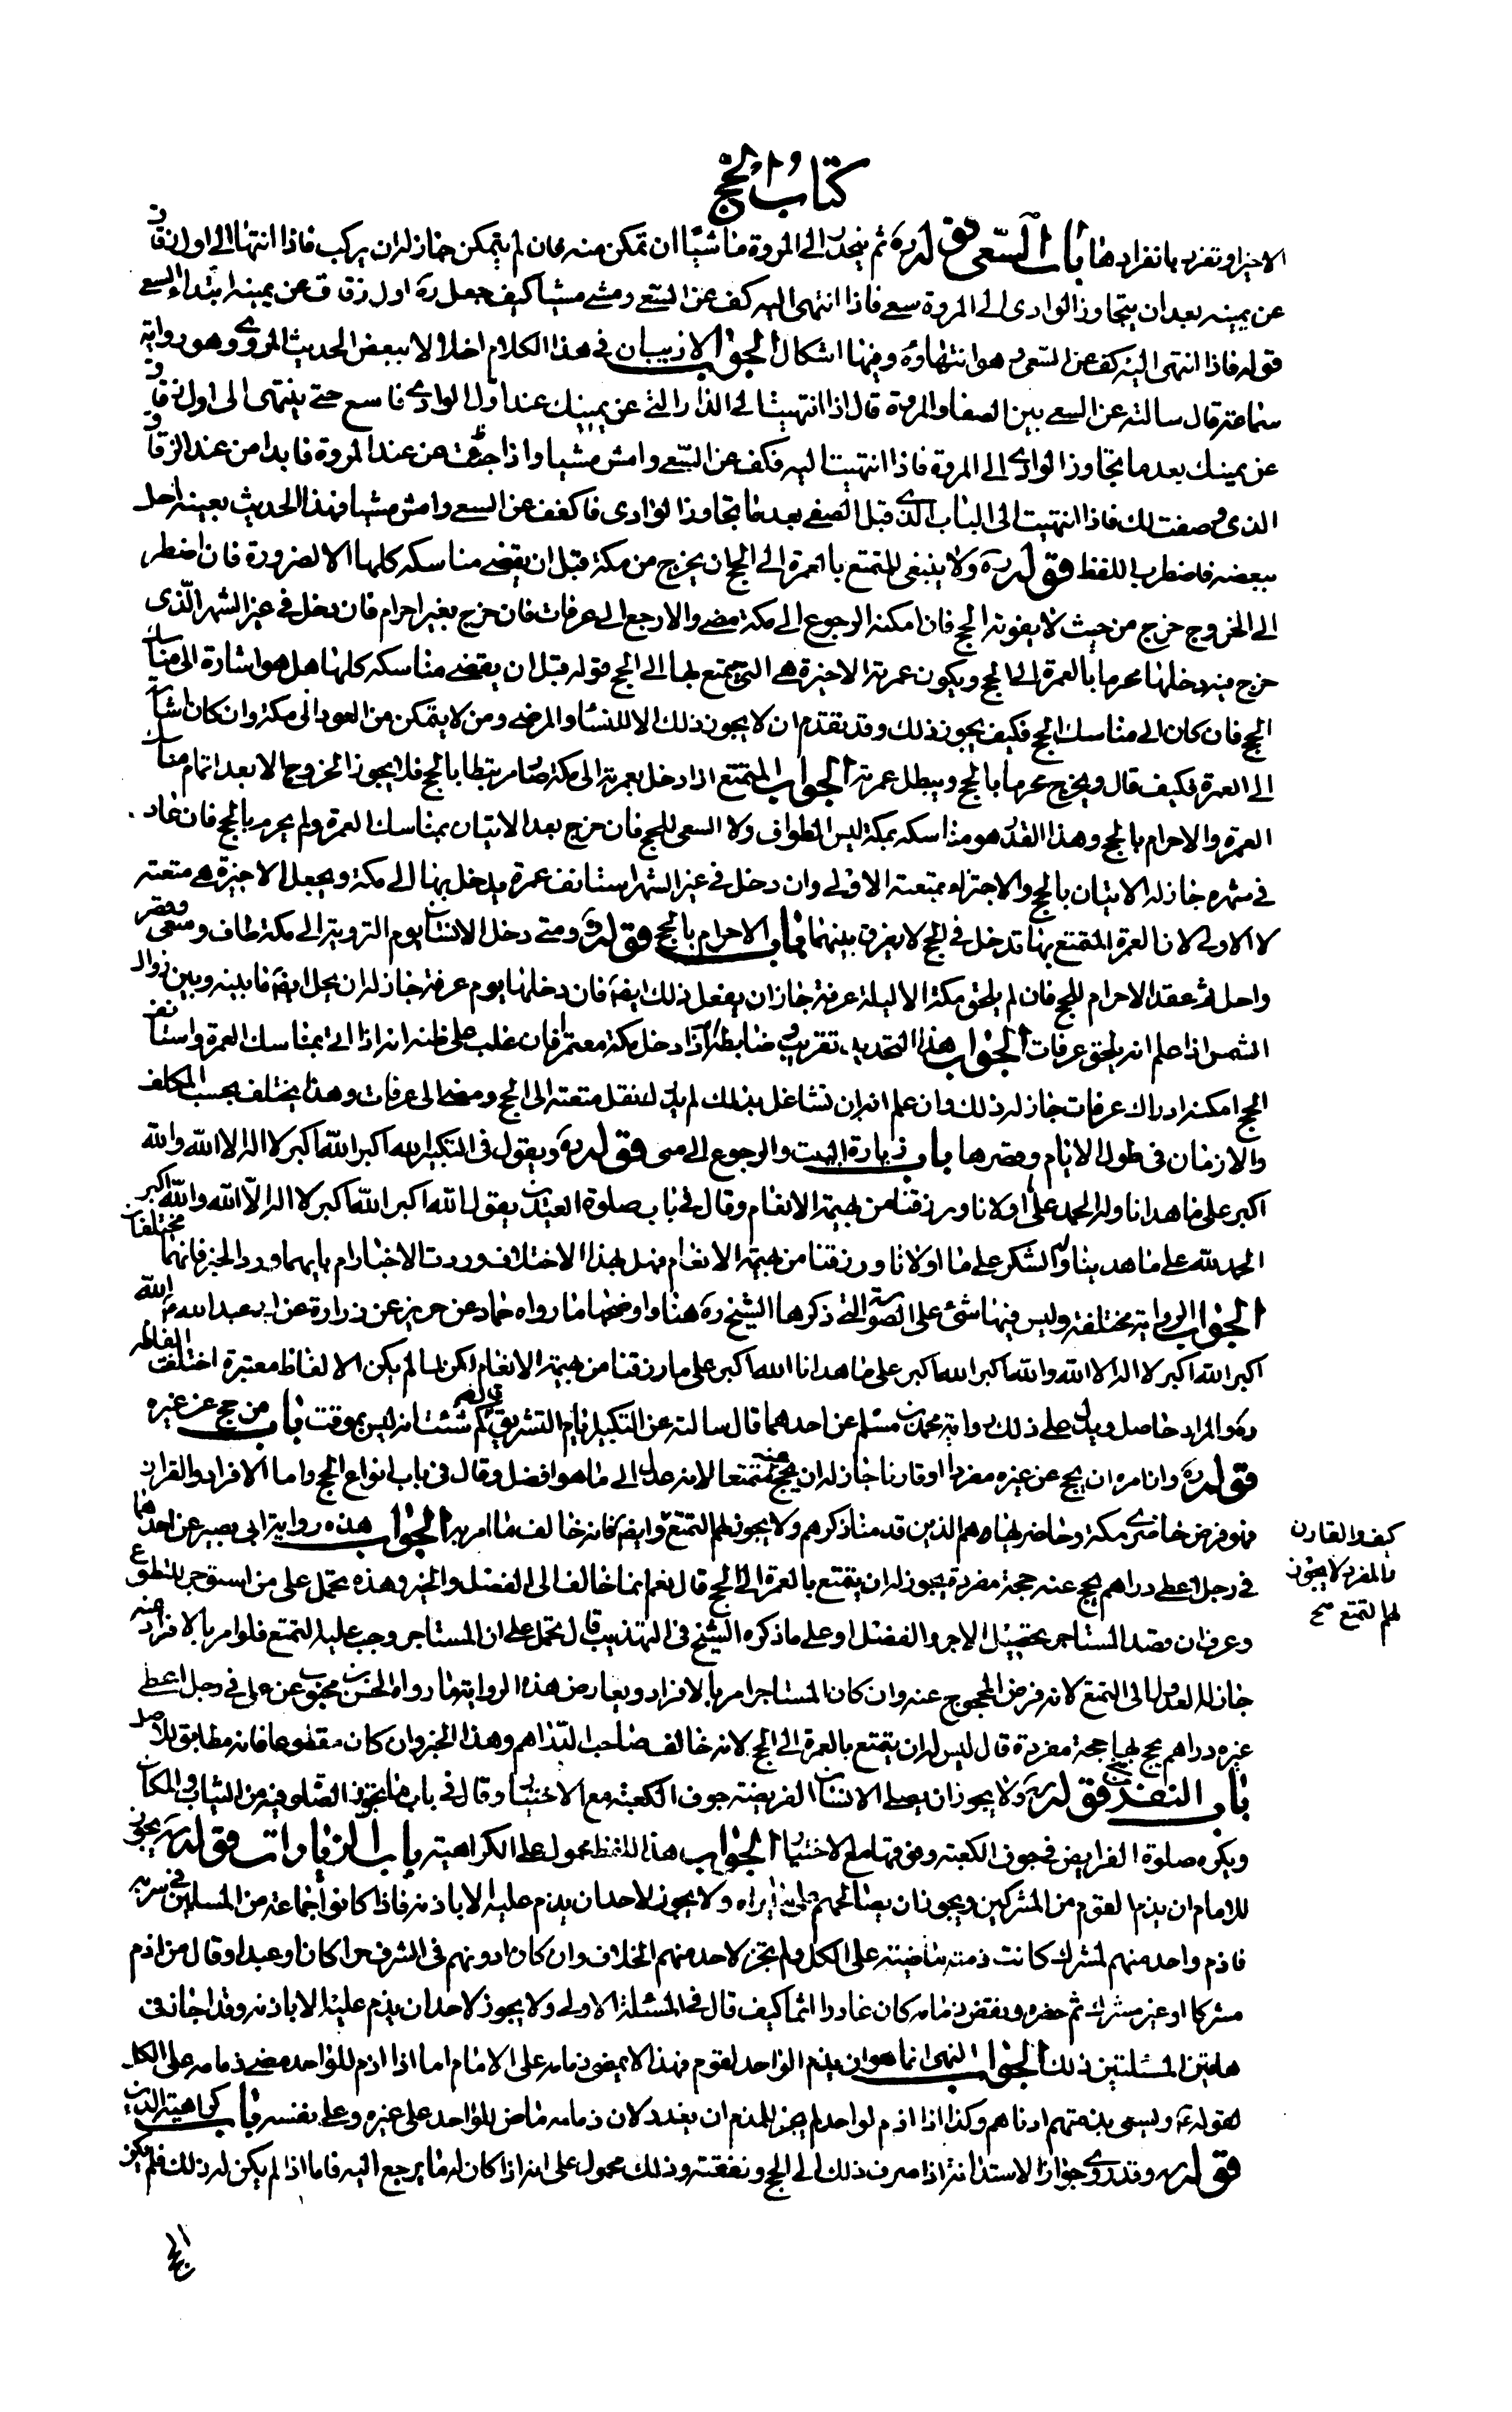 كتاب الحج
الاخير او تفرد بانفرادها باب السعى قوله ره ثم ينحدر الى المروة ماشيا ان تمكن منه فان لم يتمكن جاز له ان يركب فاذا انتها الى اول زقاق
عن يمينه بعد ان يتجاوز الوادى الى المروة سعى فاذا انتهى اليه كف عن السعى ومشى مشيا كيف جعل ره اول زقاق عن يمينه ابتداء السعى
قوله فاذا انتهى اليه كف عن السعى هو انتهاؤه وفيها اشكال الجواب لا ريب ان فى هذا الكلام اخلالا ببعض الحديث المروى وهو رواية
سماعة قال سالته عن السعى بين الصفا والمروة قال اذا انتهيت الى الدار التى عن يمينك عند اول الوادى فاسع حتى ينتهى الى اول زقاق
عن يمينك بعد ما تجاوز الوادى الى المروة فاذا انتهيت اليه فكف عن السعى وامش مشيا واذا جئت من عند المروة فابدا من عند الزقاق
الذى وصفت لك فاذا انتهيت الى الباب الذى قبل الصفى بعد ما تجاوز الوادى فاكفف عن السعى وامش مشيا فهذا الحديث بعينه اخل
ببعضه فاضطرب اللفظ قوله ره ولا ينبغى للمتمتع بالعمرة الى الحج ان يخرج من مكة قبل ان يقضى مناسكه كلها الا لضرورة فان اضطر
الى الخروج خرج من حيث لا يفوته الحج فان امكنه الرجوع الى مكة مضى والا رجع الى عرفات فان خرج بغير احرام فان دخل فى غير الشهر الذى
خرج فيه دخلها محرما بالعمرة الى الحج ويكون عمرته الاخيرة هى التى يتمتع بها الى الحج قوله قبل ان يقضى مناسكه كلها هل هو اشارة الى مناسك
الحج فان كان الى مناسك الحج فكيف يجوز ذلك وقد تقدم ان لا يجوز ذلك الا للنساء والمرضى ومن لا يتمكن من العود الى مكة وان كان اشارة
الى العمرة فكيف قال ويخرج محرما بالحج ويبطل عمرته الجواب المتمتع اذا دخل بعمرته الى مكة صار مرتبطا بالحج فلا يجوز الخروج الا بعد اتمام مناسك
العمرة والاحرام بالحج وهذا القدر هو مناسكه بمكة ليس الطواف ولا السعى للحج فان خرج بعد الاتيان بمناسك العمرة ولم يحرم بالحج فان عاد
فى شهره جاز له الاتيان بالحج والاجتزاء بمتعته الاولى وان دخل فى غير الشهر استانف عمرة يدخل بها الى مكة ويجعل الاخيرة هى متعته
لا الاولى لان العمرة المتمتع بها تدخل فى الحج لا يفرق بينهما باب الاحرام بالحج قوله ره ومتى دخل الانسان يوم التروية الى مكة طاف وسعى وقصر
واحل ثم عقد الاحرام للحج فان لم يلحق مكة الا ليلة عرفة جاز ان يفعل ذلك ايضا فان دخلها يوم عرفة جاز له ان يحل ايضا ما بينه وبين زوال
الشمس اذا علم انه يلحق عرفات الجواب هذا التحديد تقريب وضابطه اذا دخل مكة معتمرا فان غلب على ظنه انه اذا اتى بمناسك العمرة واستانف
الحج امكنه ادراك عرفات جاز له ذلك وان علم انه ان تشاغل بذلك لم يدرك نقل متعته الى الحج ومضى الى عرفات وهذا يختلف بحسب المكلف
والازمان فى طول الايام وقصرها باب زيارة البيت والرجوع الى منى قوله ره ويقول فى التكبير الله اكبر الله اكبر لا اله الا الله والله
اكبر على ما هدانا وله الحمد على ما اولانا ورزقنا من بهيمة الانعام وقال فى باب صلوة العيدين يقول الله اكبر الله اكبر لا اله الا الله والله اكبر
الحمد لله على ما هدينا وله الشكر على ما اولانا ورزقنا من بهيمة الانعام فهل لهذا الاختلاف وردت الاخبار ام بايهما ورد الخبر فانهما مختلفان
الجواب الرواية مختلفة وليس فيها شئ على الصورة التى ذكرها الشيخ ره هنا واوضحها ما رواه حماد عن حريز عن زرارة عن ابى عبد الله ع الله
اكبر الله اكبر لا اله الا الله والله اكبر الله اكبر على ما هدانا الله اكبر على ما رزقنا من بهيمة الانعام لكن لما لم يكن الالفاظ معتبرة اختلفت الفاظه
ره والمراد حاصل ويدل على ذلك رواية محمد بن مسلم عن احدهما قال سالته عن التكبير ايام التشريق قال كم شئت انه ليس بموقت باب من حج عن غيره
قوله ره وان امره ان يحج عن غيره مفردا او قارنا جاز له ان يحج عنه متمتعا لانه عدل الى ما هو افضل وقال فى باب انواع الحج واما الافراد والقران
فهو فرض حاضرى مكة وحاضريها هم الذين قدمنا ذكرهم ولا يجوز لهم التمتع وايضا فانه خالف ما امر به الجواب هذه رواية ابى بصير عن احدهما
فى رجل اعطى دراهم يحج عنه حجة مفردة فيجوز له ان يتمتع بالعمرة الى الحج قال نعم انما خالف الى الفضل والخير وهذه تحمل على من استوجر للتطوع
وعرف ان قصد المستاجر تحصيل الاجر والفضل او على ما ذكره الشيخ فى التهذيب قال تحمل على ان المستاجر وجب عليه التمتع فلو امر بالافراد عنه
جاز له العدول الى التمتع لانه فرض المحجوج عنه وان كان المستاجر امر بالافراد ويعارض هذه الرواية ما رواه الحسن بن محبوب عن على فى رجل اعطى
غيره دراهم يحج بها حجة مفردة قال ليس له ان يتمتع بالعمرة الى الحج لانه خالف صاحب الدراهم وهذا الخبر وان كان مقطوعا فانه مطابق للاصل
باب النفر قوله ره ولا يجوز ان يصلى الانسان الفريضة جوف الكعبة مع الاختيار وقال فى باب ما يجوز الصلوة فيه من الثياب والمكان
ويكره صلوة الفرايض فى جوف الكعبة وفوقها مع الاختيار الجواب هذا اللفظ محمول على الكراهية باب الزيادات قوله ره يجوز
للامام ان يذم لقوم من المشركين ويجوز ان يصالحهم على ما يراه ولا يجوز لاحد ان يذم عليه الا باذنه فاذا كانوا جماعة من المسلمين فى سرية
فاذم واحد منهم لمشرك كانت ذمته ماضية على الكل ولم يجز لاحد منهم الخلاف وان كان ادونهم فى الشرف حرا كان او عبدا وقال من اذم
مشركا او غير مشرك ثم حضره ونقض ذمامه كان غادرا اثما كيف قال فى المسئلة الاولى ولا يجوز لاحد ان يذم عليه الا باذنه وقد اجاز فى
هاتين المسئلتين ذلك الجواب النهى انما هو ان يذم الواحد لقوم فهذا لا يمضى ذمامه على الامام اما اذا اذم للواحد مضى ذمامه على الكل
لقوله ع ويسعى بذمتهم ادناهم وكذا اذا اذم لواحد لم يجز للمذم ان يغدر لان ذمامه ماض للواحد على غيره وعلى نفسه باب كراهية الدين
قوله ره وقد روى جواز الاستدانة اذا صرف ذلك الى الحج ونفقته وذلك محمول على انه اذا كان له ما يرجع اليه فاما اذا لم يكن له ذلك فلم يكن
كيف والقارن
والمفرد لا يجوز
لهما التمتع صح
الحج